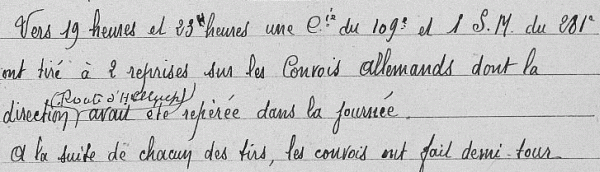 Vers 19 heures et 23 heures une Cie du 109e et 1 S.M. du 281e
ont tiré à 2 reprises sur les Convois allemands dont la
(Route d'Hulluch)
direction avait été repérée dans la journée.
A la suite de chacun des tirs, les convois ont fait demi-tour